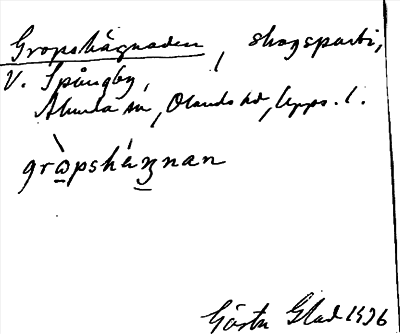 Gropshägnaden, skogsparti,
V. Spångby,
Alunda sn, Olands hd, Upps. l.
gròpshá̈gnan
Gösta Glad 1936